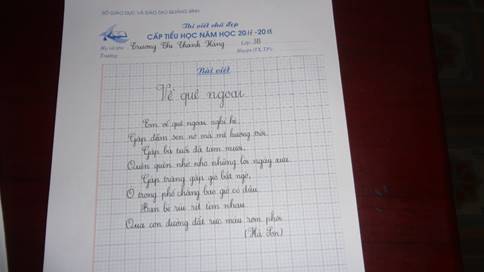 SỞ GIÁO DỤC VÀ ĐÀO TẠO QUẢNG BÌNH
Thi viết chữ đẹp
CẤP TIỂU HỌC NĂM HỌC 2017-2018
Họ và tên: Trương Thị Thanh Hằng Lớp: 3B
Trường: Huyện (TX, TP):
Bài viết
Về quê ngoại
Em về quê ngoại nghỉ hè,
Gặp đầm sen nở mà mê hương trời.
Gặp bà tuổi đã tám mươi,
Quên quên nhớ nhớ những lời ngày xưa.
Gặp trăng gặp gió bất ngờ,
Ở trong phố chẳng bao giờ có đâu.
Bạn bè ríu rít tìm nhau
Qua con đường đất rực màu rơm phơi.
(Hà Sơn)